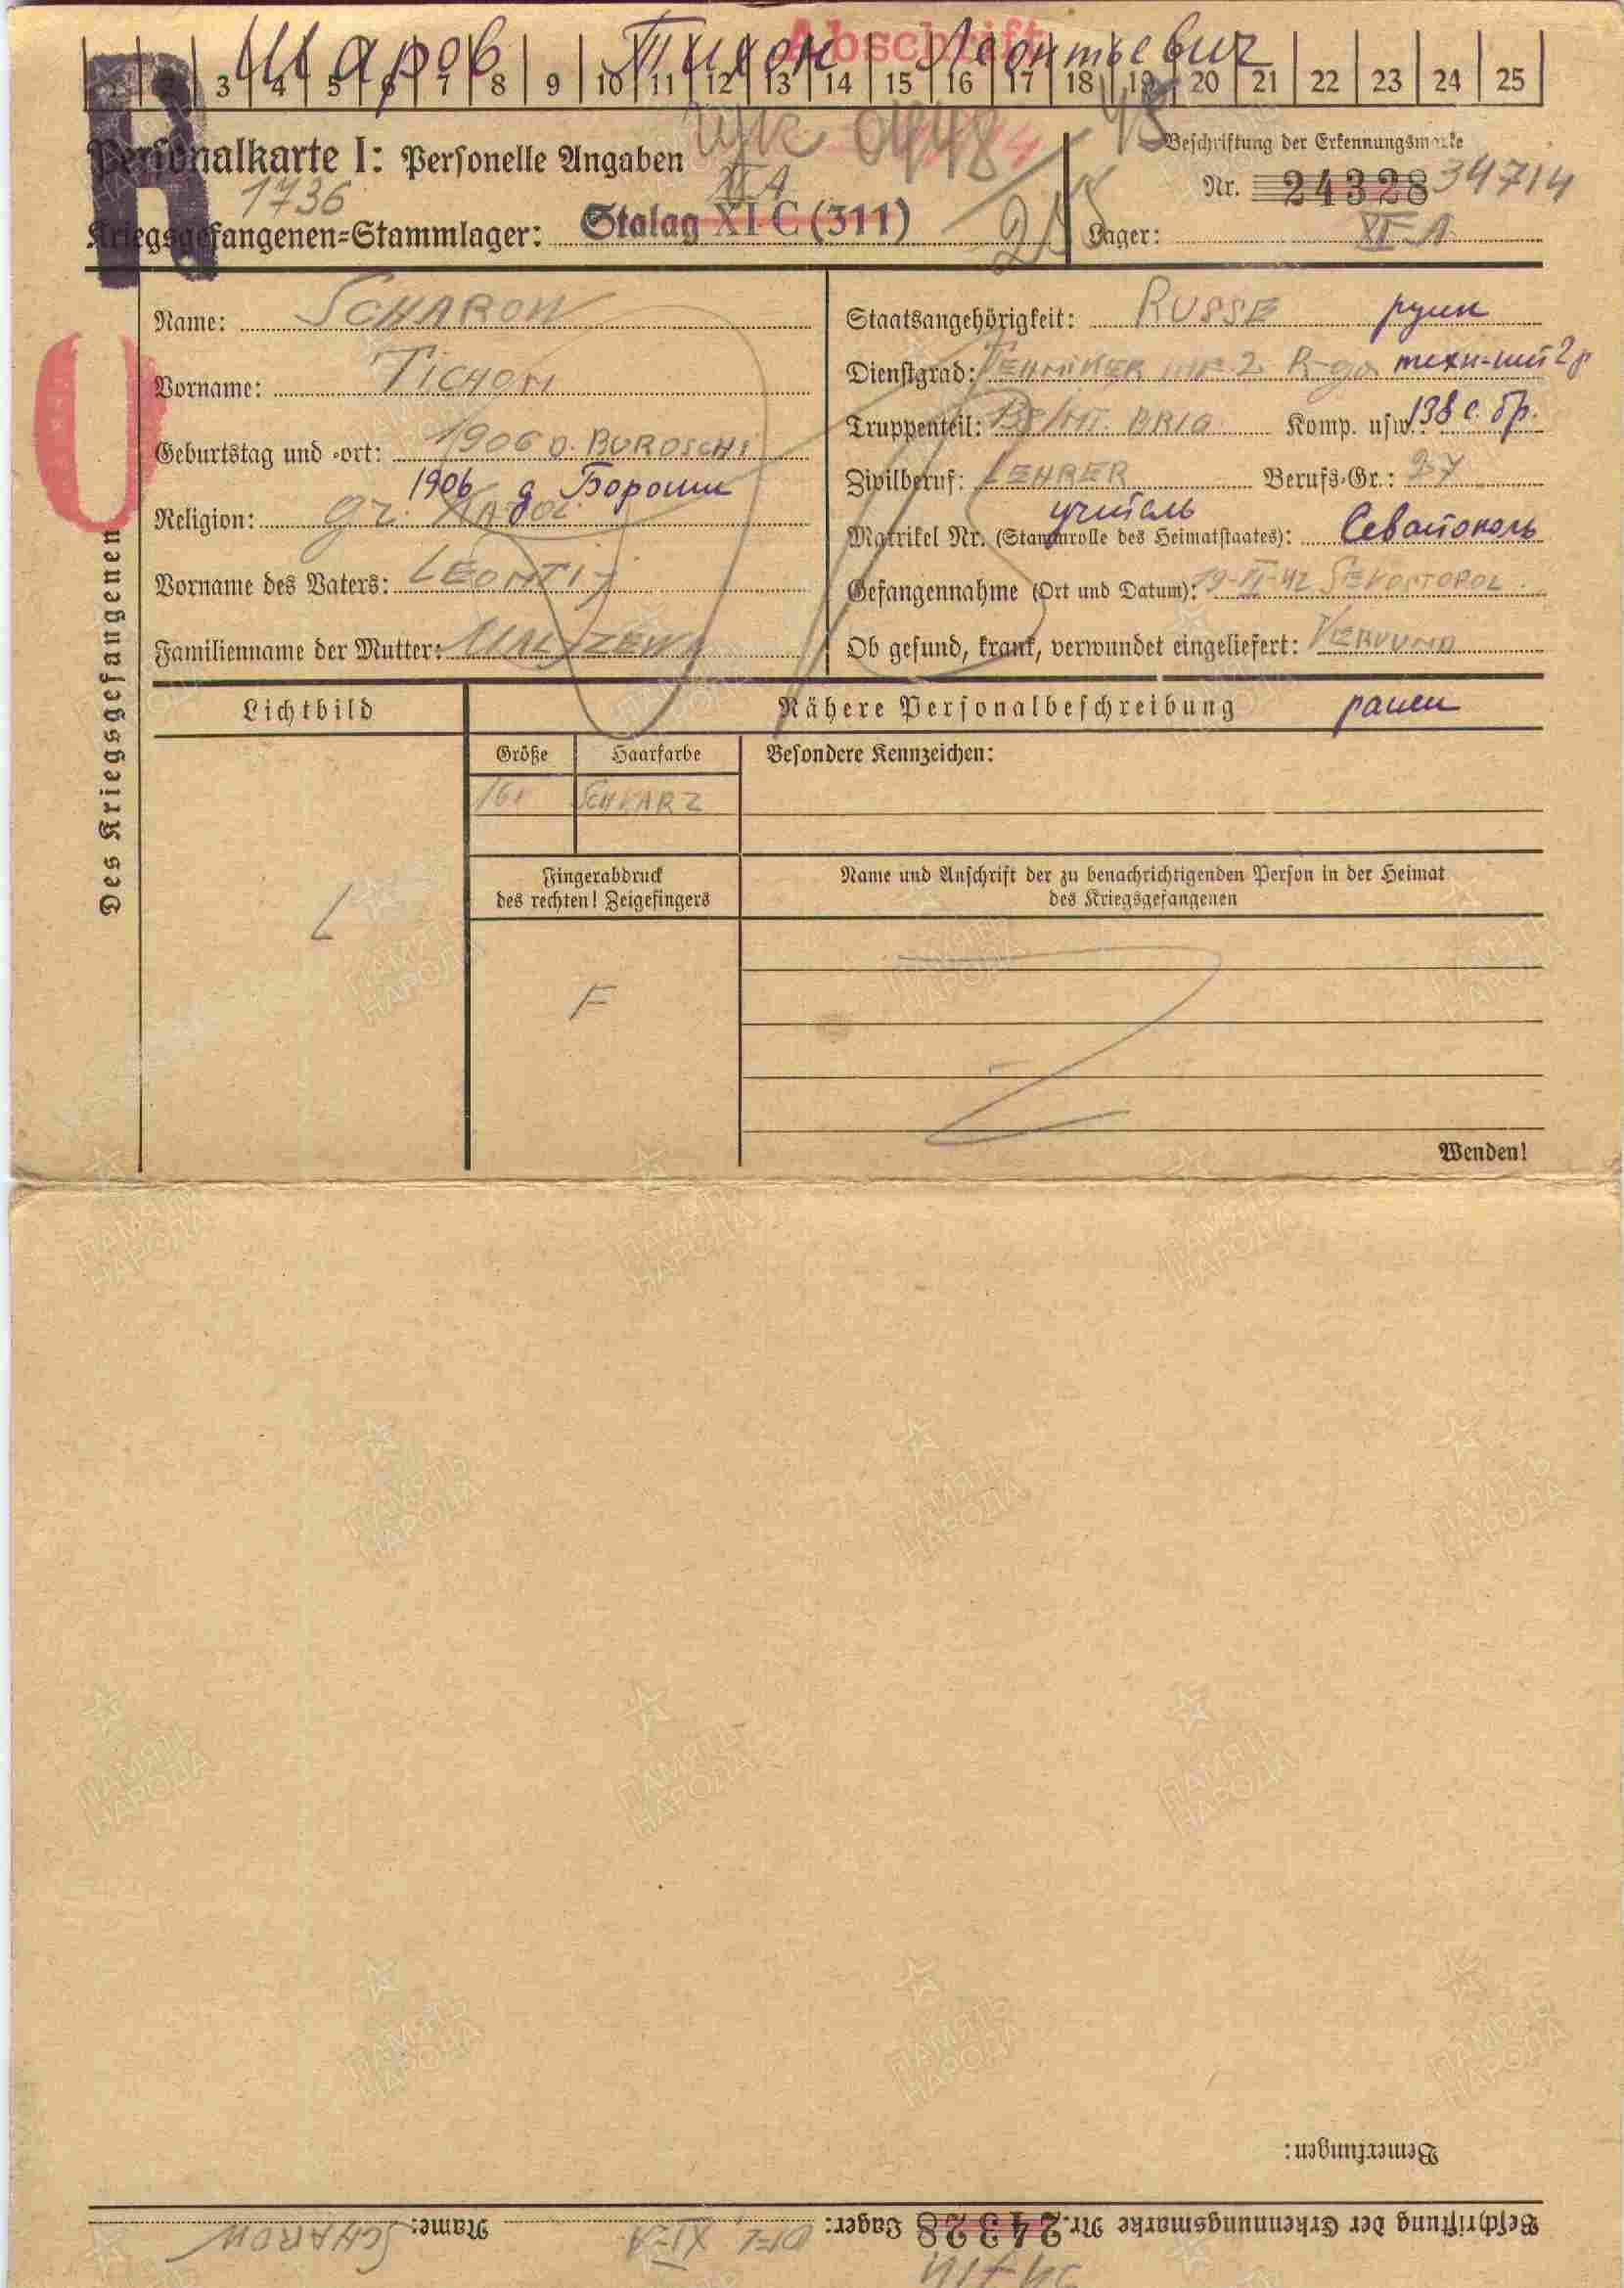 Шаров Тихон Леонтьевич
Abschrift
3 4 5 6 7 8 9 10 11 12 13 14 15 16 17 18 19 20 21 22 23 24 25
R
Personalkarte I: Personelle Angaben
Beschriftung der Erkennungsmarke
Nr. 24328 34714
1736
XI A
Kriegsgefangenen=Stammlager: Stalag XI C (311)
Lager: XI A
Des Kriegsgefangenen
Name: SCHAROW
Vorname: TICHON
Geburtstag und -ort: 1906 D. BOROSCHI
1906 д Бороши
Religion: gr. Kadol.
Vorname des Vaters: LEONTIJ
Familienname der Mutter: MALZEWA
Staatsangehörigkeit: RUSSE
Dienstgrad: TEHNIKER 2 техн-инт 2 р
Truppenteil: BRIG Komp. usw.: 138 с. бр.
Zivilberuf: LEHRER Berufs-Gr.: 27
учитель
Matrikel Nr. (Stammrolle des Heimatstaates): Севастополь
Gefangennahme (Ort und Datum): 19-VI-42 SEVOSTOPOL
Ob gesund, krank, verwundet eingeliefert: VERVUND
ранен
Lichtbild
Nähere Personalbeschreibung
Größe
Haarfarbe
Besondere Kennzeichen:
SCHVARZ
Fingerabdruck
des rechten! Zeigefingers
Name und Anschrift der zu benachrichtigenden Person in der Heimat
des Kriegsgefangenen
L
F
Wenden!
Bemerkungen:
Beschriftung der Erkennungsmarke Nr. 24328 Lager: OFL XI-A Name: SCHAROW
34714
ПАМЯТЬ НАРОДА